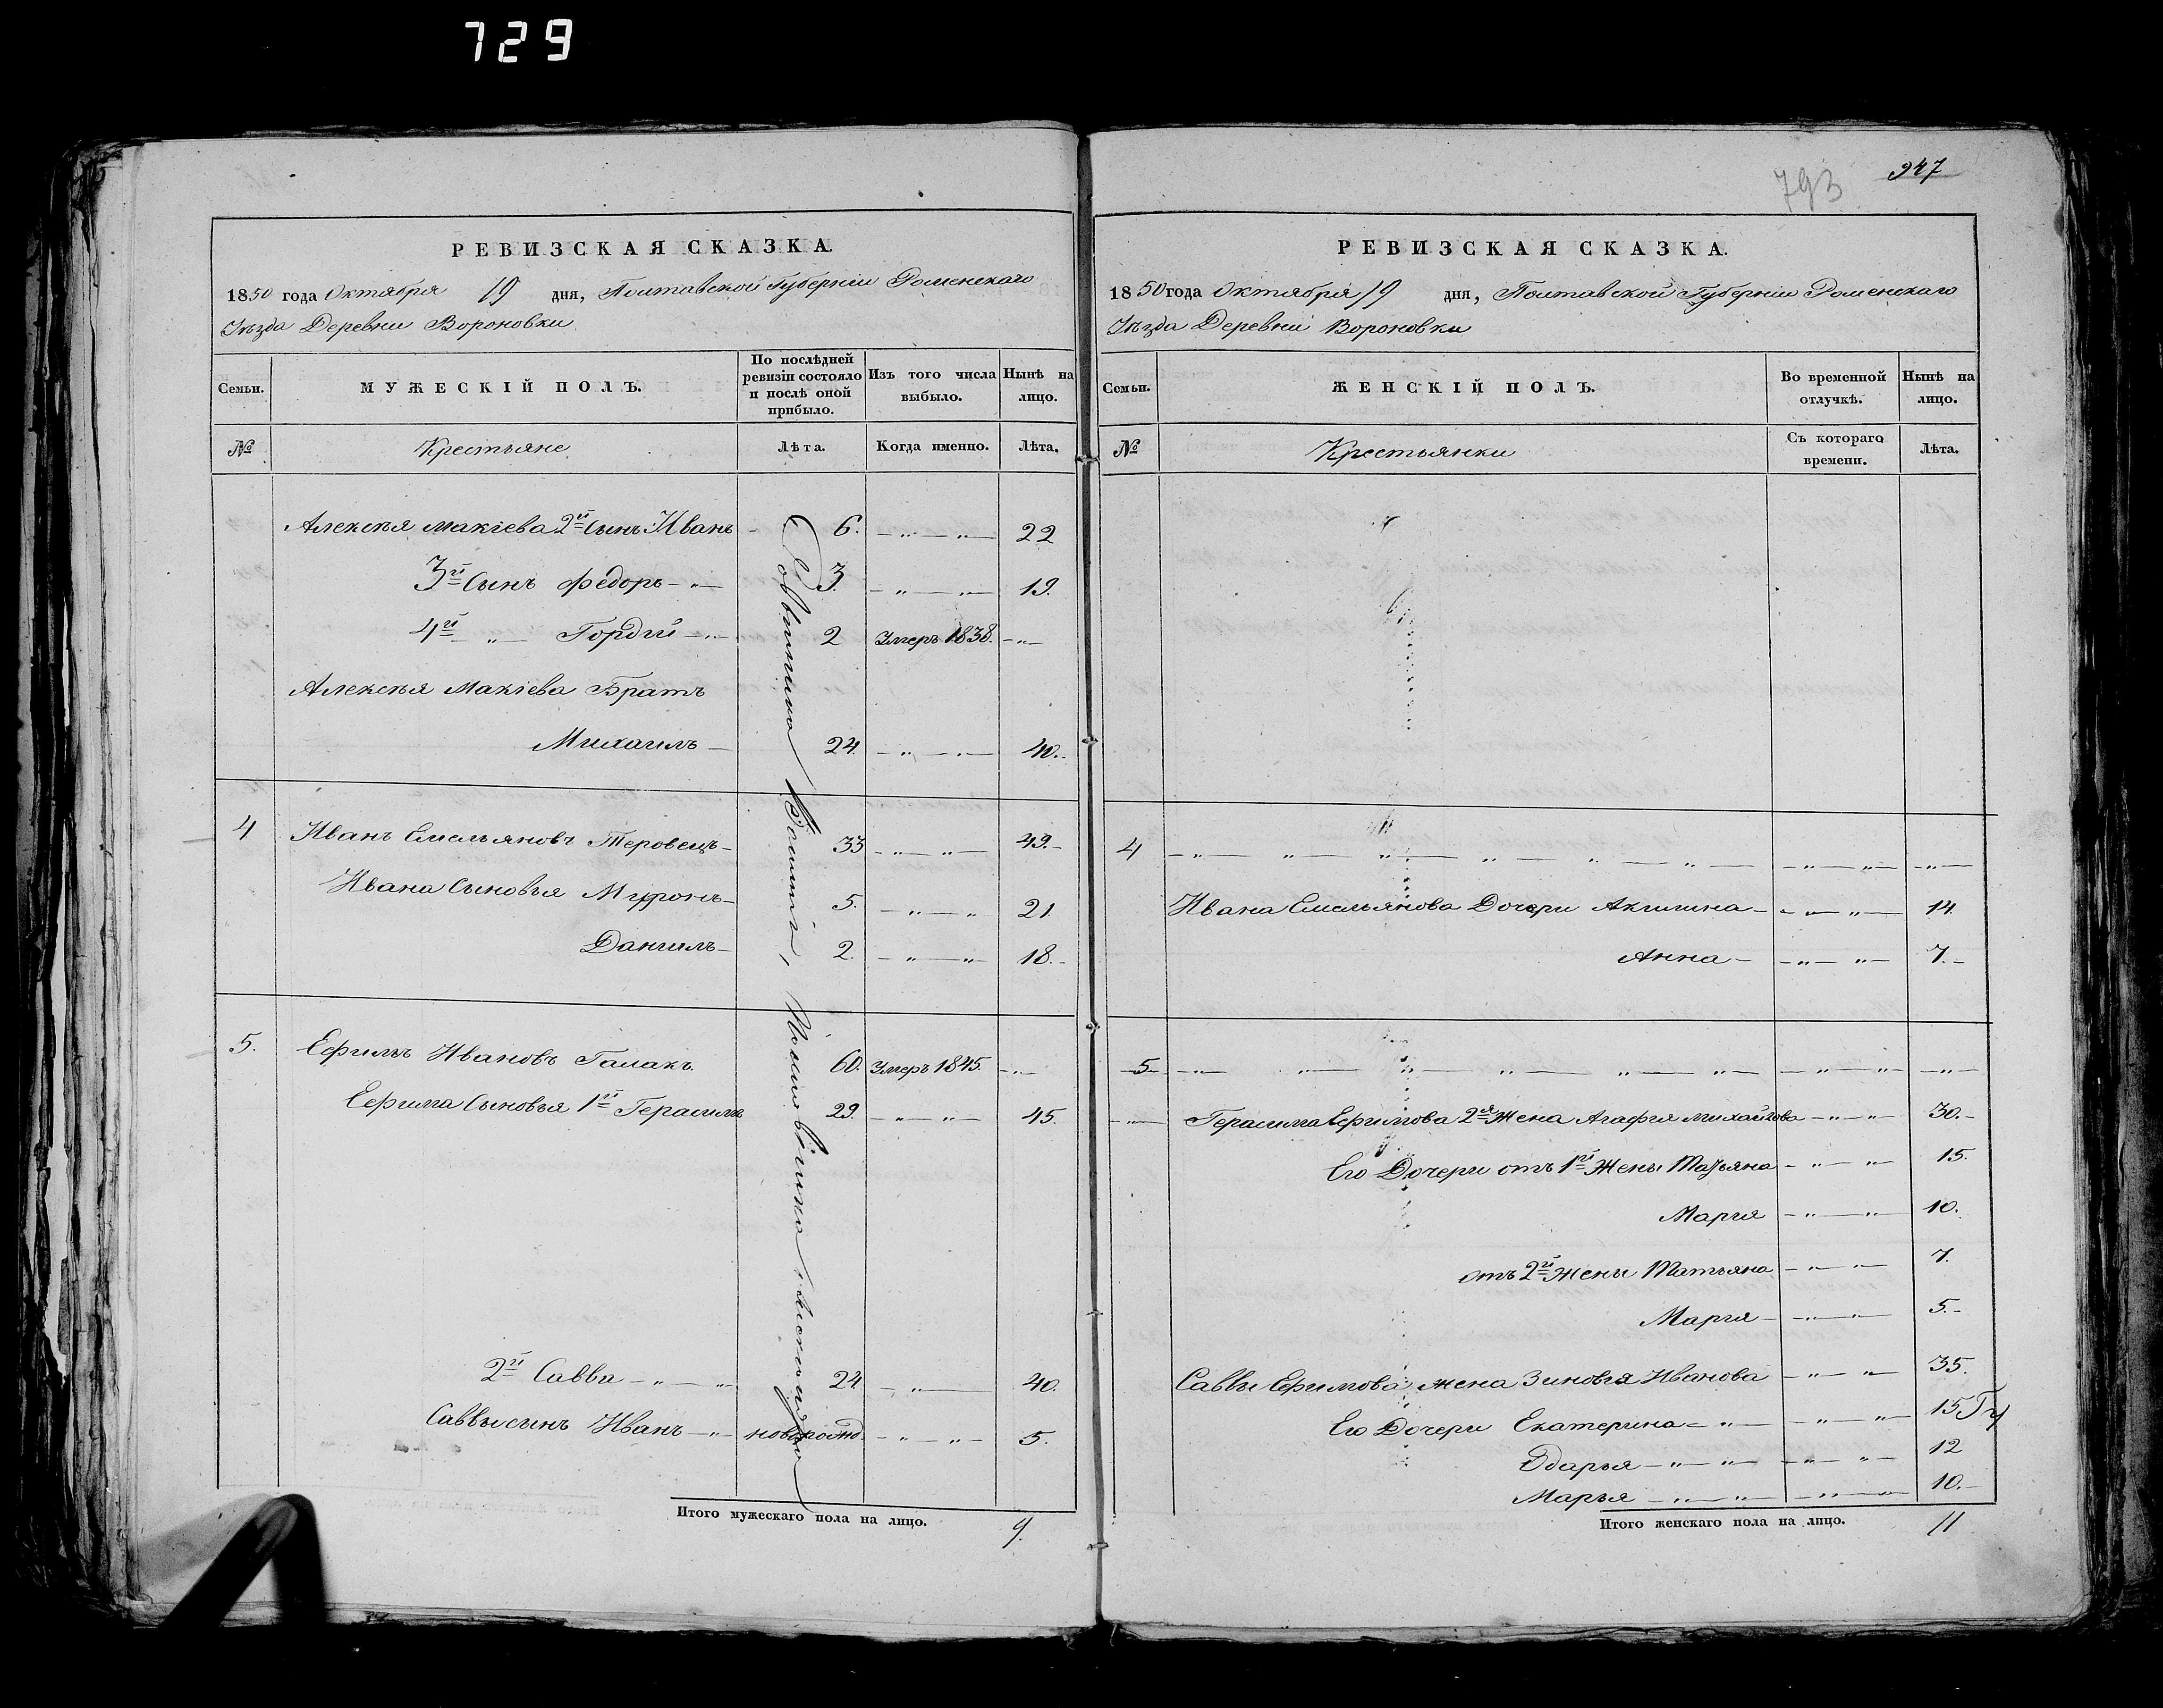 729
793
947
РЕВИЗСКАЯ СКАЗКА.
1850 года Октября 19 дня, Полтавской Губерніи Роменскаго
Уѣзда Деревни Вороновки
Семьи.
МУЖЕСКІЙ ПОЛЪ.
По послѣдней ревизіи состояло и послѣ оной прибыло.
Изъ того числа выбыло.
Нынѣ на лицо.
№
Крестьяне
Лѣта.
Когда именно.
Лѣта.
Алексѣя Макіева 2й Сынъ Иванъ - 6. - „ - „ - 22
3й Сынъ Федоръ - „ - 3. - „ - „ - 19.
4й - „ - Гордій - „ - 2 Умеръ 1838. - „ -
Алексѣя Макіева Братъ
Михаилъ - 24. - „ - „ - 40. -
4 Иванъ Емельяновъ Теровецъ - 33 - „ - „ - 49. -
Ивана Сыновья Миронъ - 5. - „ - „ 21.
Данилъ - 2. - „ - „ - 18. -
5. Ефимъ Ивановъ Галакъ. 60. Умеръ 1845. - „ -
Ефима Сыновья 1й Герасимъ 29. - „ - „ - 45.
2й Савва - „ - „ 24 - „ - 40.
Саввы сынъ Иванъ - „ - новорожд. - „ - „ - 5.
Итого мужескаго пола на лицо. 9.
РЕВИЗСКАЯ СКАЗКА.
1850 года Октября 19 дня, Полтавской Губерніи Роменскаго
Уѣзда Деревни Вороновки
Семьи.
ЖЕНСКІЙ ПОЛЪ.
Во временной отлучкѣ.
Нынѣ на лицо.
№
Крестьянки
Съ котораго времени.
Лѣта.
4 - „ - „ - „ - „ - „ - „ - - „ - „ - - „ -
Ивана Емельянова Дочери Акилина - - „ - „ - 14.
Анна - - „ - „ - 7. -
5 - „ - „ - „ - „ - „ - „ - - „ - „ - - „ -
- „ - Герасима Ефимова 2я Жена Агафія Михайлова - „ - „ 30. -
Его Дочери отъ 1й Жены Татьяна - „ - „ - 15.
Марія - „ - „ - 10.
отъ 2й Жены Татьяна - „ - „ - 7.
Марія - - „ - „ - 5. -
Саввы Ефимова жена Зиновія Иванова - „ - „ - 35.
Его Дочери Екатерина - „ - - „ - „ - 15
Одарья - „ - „ - - „ - „ - 12
Марья - „ - „ - - „ - „ - 10. -
Итого женскаго пола на лицо. 11